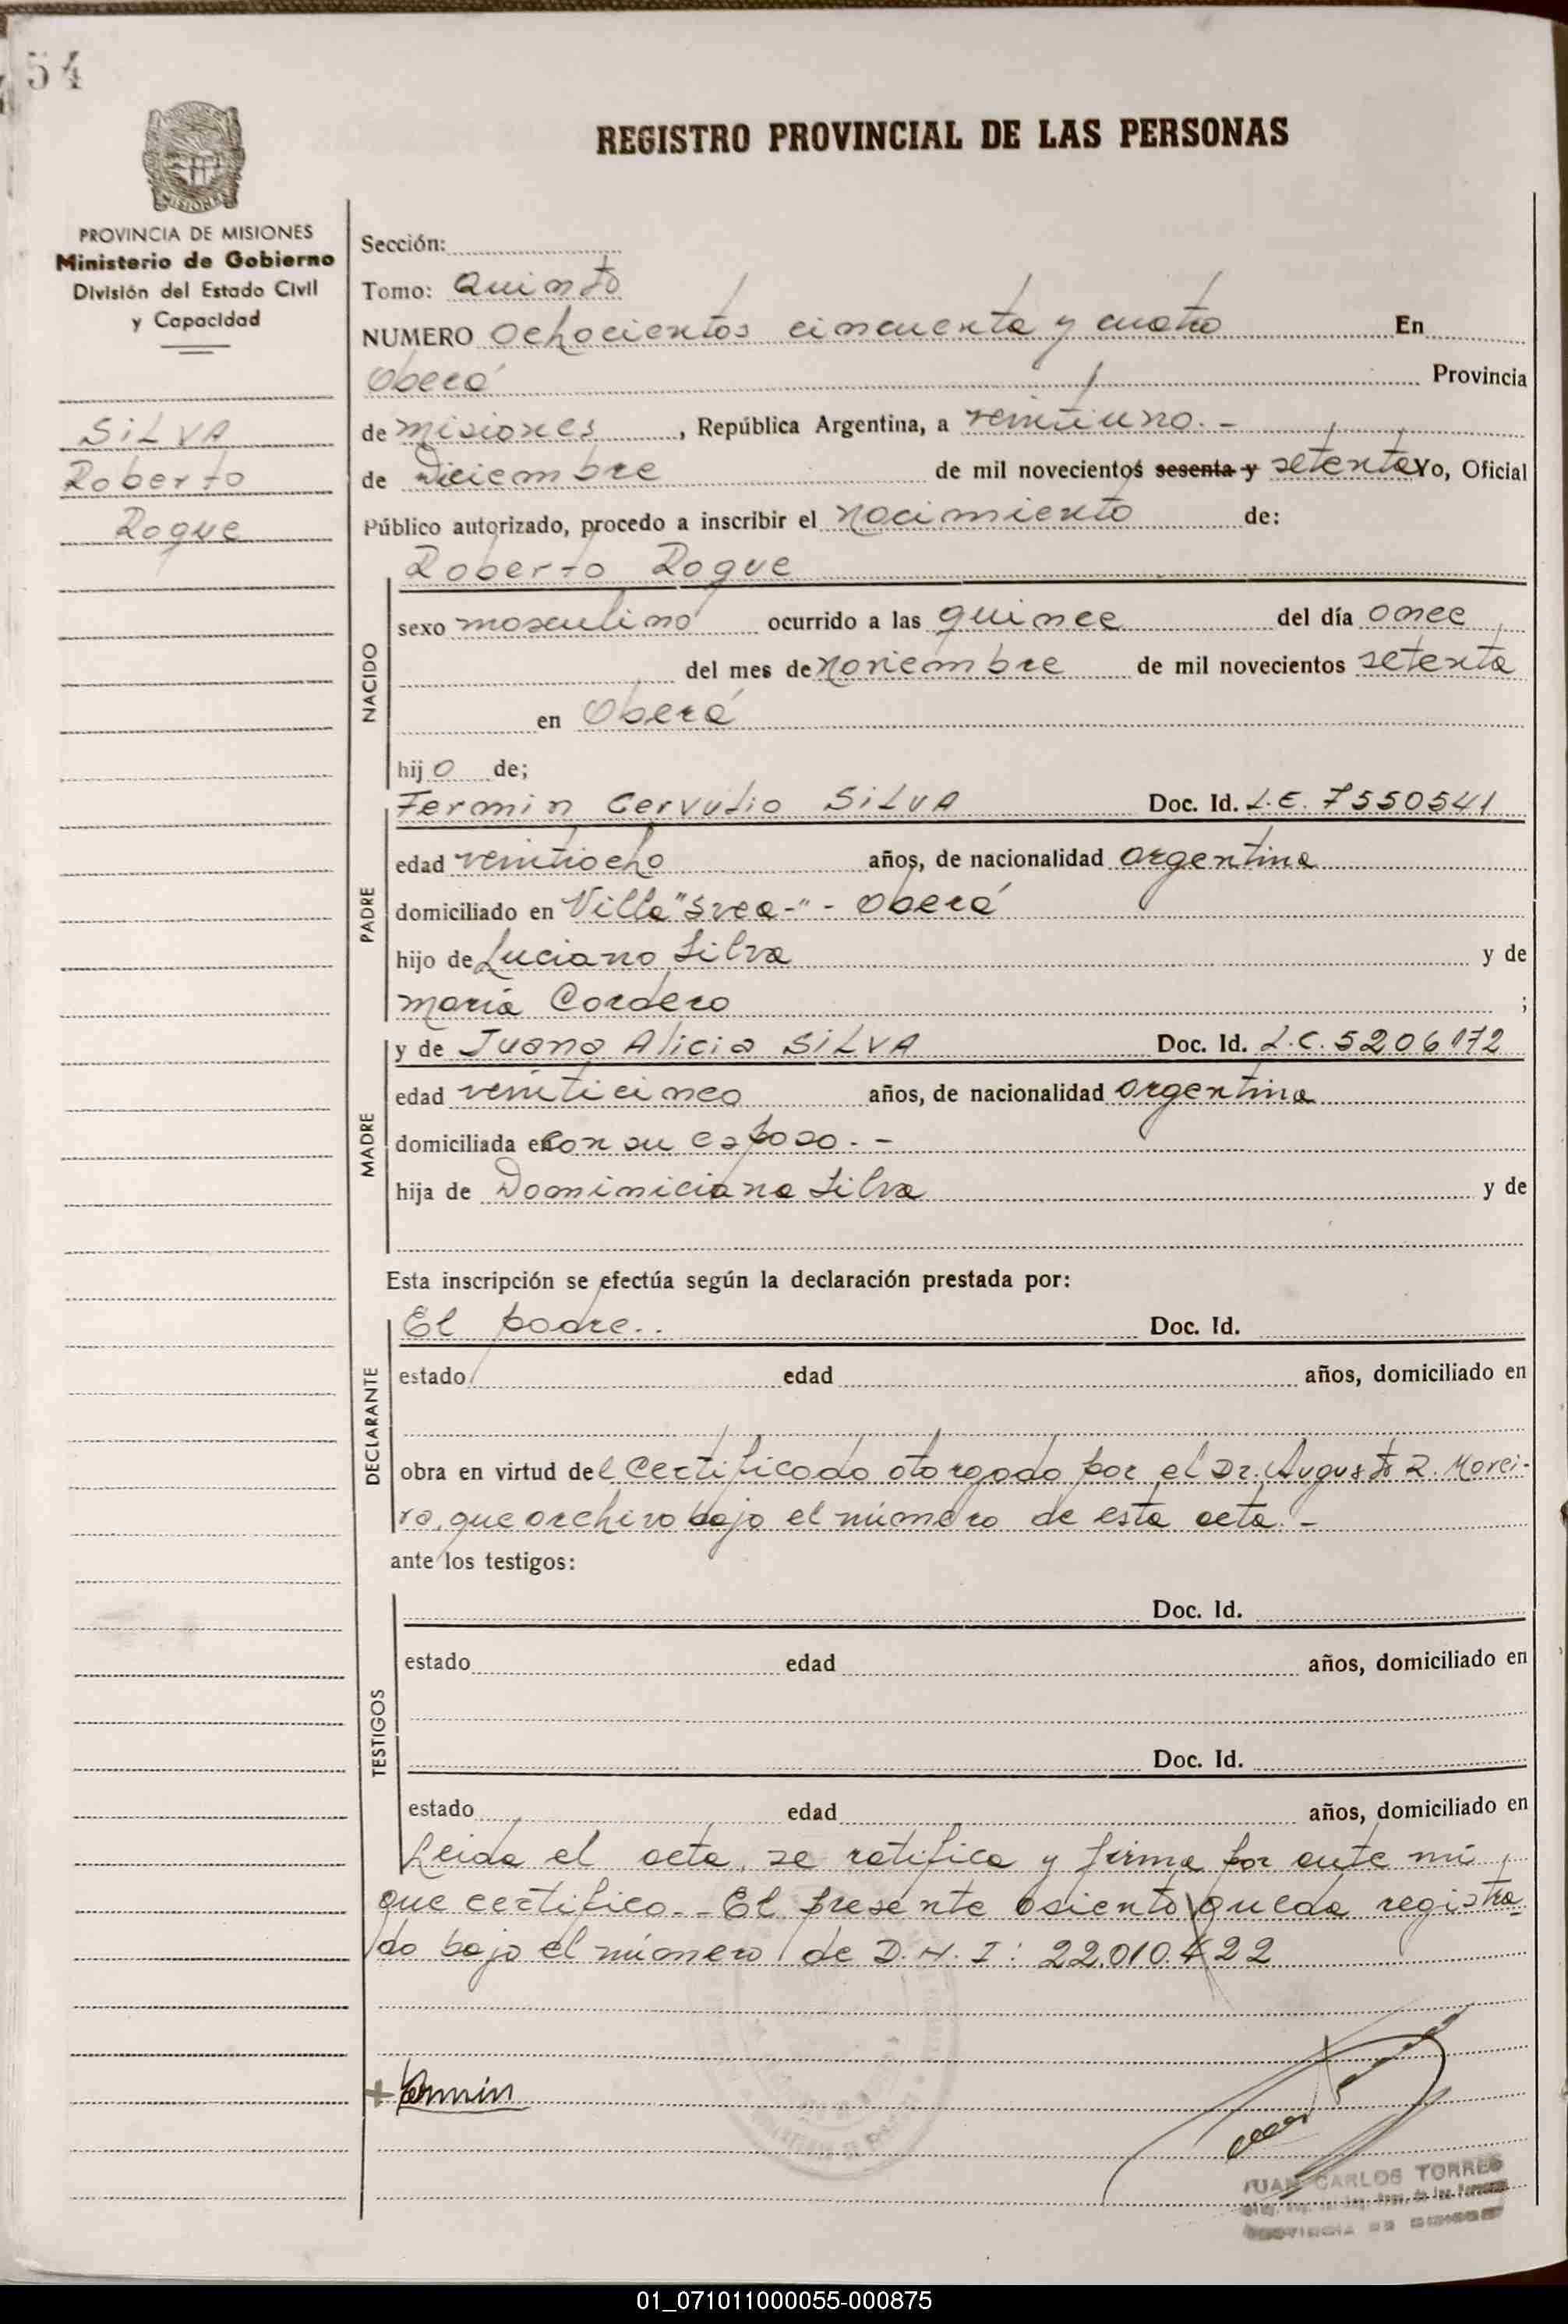 54
REGISTRO PROVINCIAL DE LAS PERSONAS
MISIONES
PROVINCIA DE MISIONES
Ministerio de Gobierno
División del Estado Civil
y Capacidad
SILVA
Roberto
Roque
Sección:
Tomo: Quinto
NUMERO Ochocientos cincuenta y cuatro En
Oberá Provincia
de Misiones, República Argentina, a veintiuno. -
de Diciembre de mil novecientos sesenta y setenta Yo, Oficial
Público autorizado, procedo a inscribir el nacimiento de:
Roberto Roque
NACIDO
sexo masculino ocurrido a las quince del día once
del mes de noviembre de mil novecientos setenta
en Oberá
hijo de;
PADRE
Fermin Cervulio SILVA Doc. Id. L.E. 7550541
edad veintiocho años, de nacionalidad argentina
domiciliado en Villa "Svea-" - Oberá
hijo de Luciano Silva y de
María Cordero ;
MADRE
y de Juana Alicia SILVA Doc. Id. L.C. 5206172
edad veinticinco años, de nacionalidad argentina
domiciliada en con su esposo. -
hija de Dominiciana Silva y de
Esta inscripción se efectúa según la declaración prestada por:
DECLARANTE
El padre.. Doc. Id.
estado edad años, domiciliado en
obra en virtud del certificado otorgado por el Dr. Augusto R. Morei-
ra, que archivo bajo el número de esta acta. -
ante los testigos:
TESTIGOS
Doc. Id.
estado edad años, domiciliado en
Doc. Id.
estado edad años, domiciliado en
Leida el acta, se ratifica y firma por ante mi
que certifico. - El presente asiento queda registra-
do bajo el número de D.N.I: 22.010.422
+ Fermin
JUAN CARLOS TORRES
PROVINCIA DE MISIONES
01_071011000055-000875